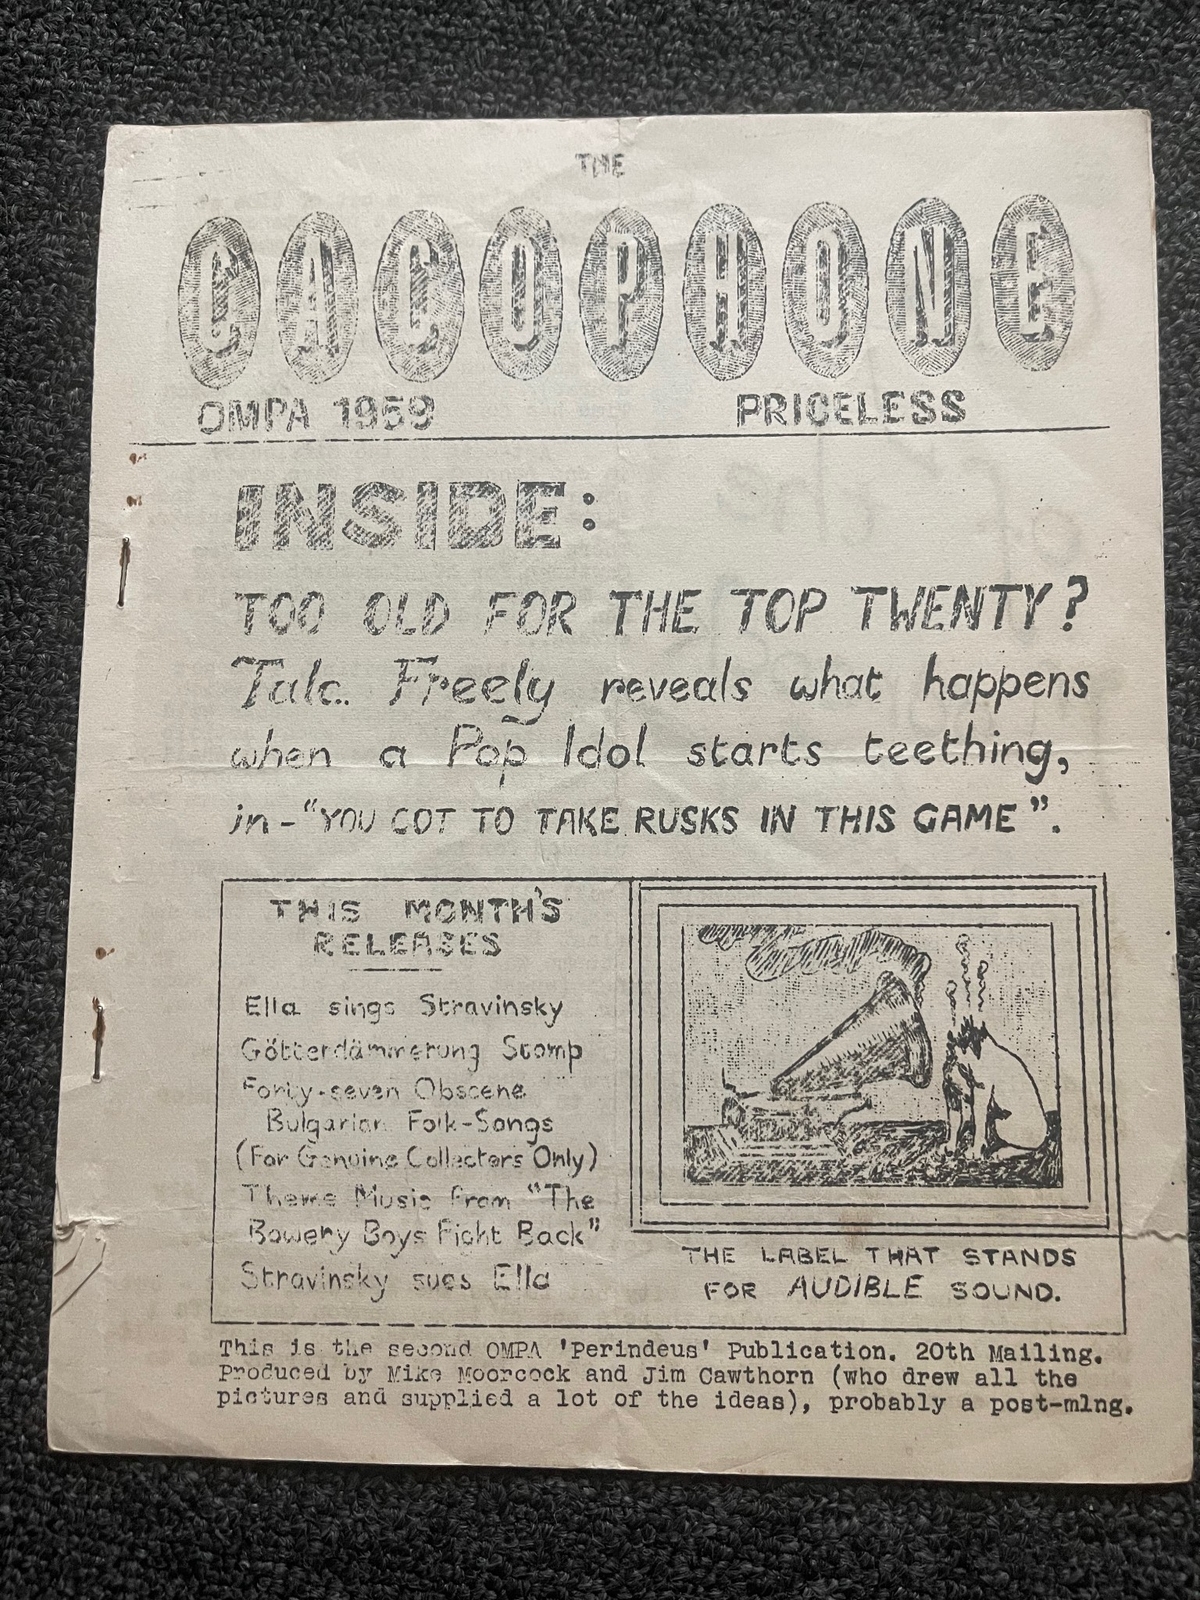 THE
CACOPHONE
OMPA 1959
PRICELESS
INSIDE:
TOO OLD FOR THE TOP TWENTY?
Talc. Freely reveals what happens
when a Pop Idol starts teething,
in-"YOU GOT TO TAKE RUSKS IN THIS GAME".
THIS MONTH'S
RELEASES
Ella sings Stravinsky
Götterdämmerung Stomp
Forty-seven Obscene
Bulgarian Folk-Songs
(For Genuine Collectors Only)
Theme Music from "The
Bowery Boys Fight Back"
Stravinsky sues Ella
THE LABEL THAT STANDS
FOR AUDIBLE SOUND.
This is the second OMPA 'Perindeus' Publication. 20th Mailing.
Produced by Mike Moorcock and Jim Cawthorn (who drew all the
pictures and supplied a lot of the ideas), probably a post-mlng.